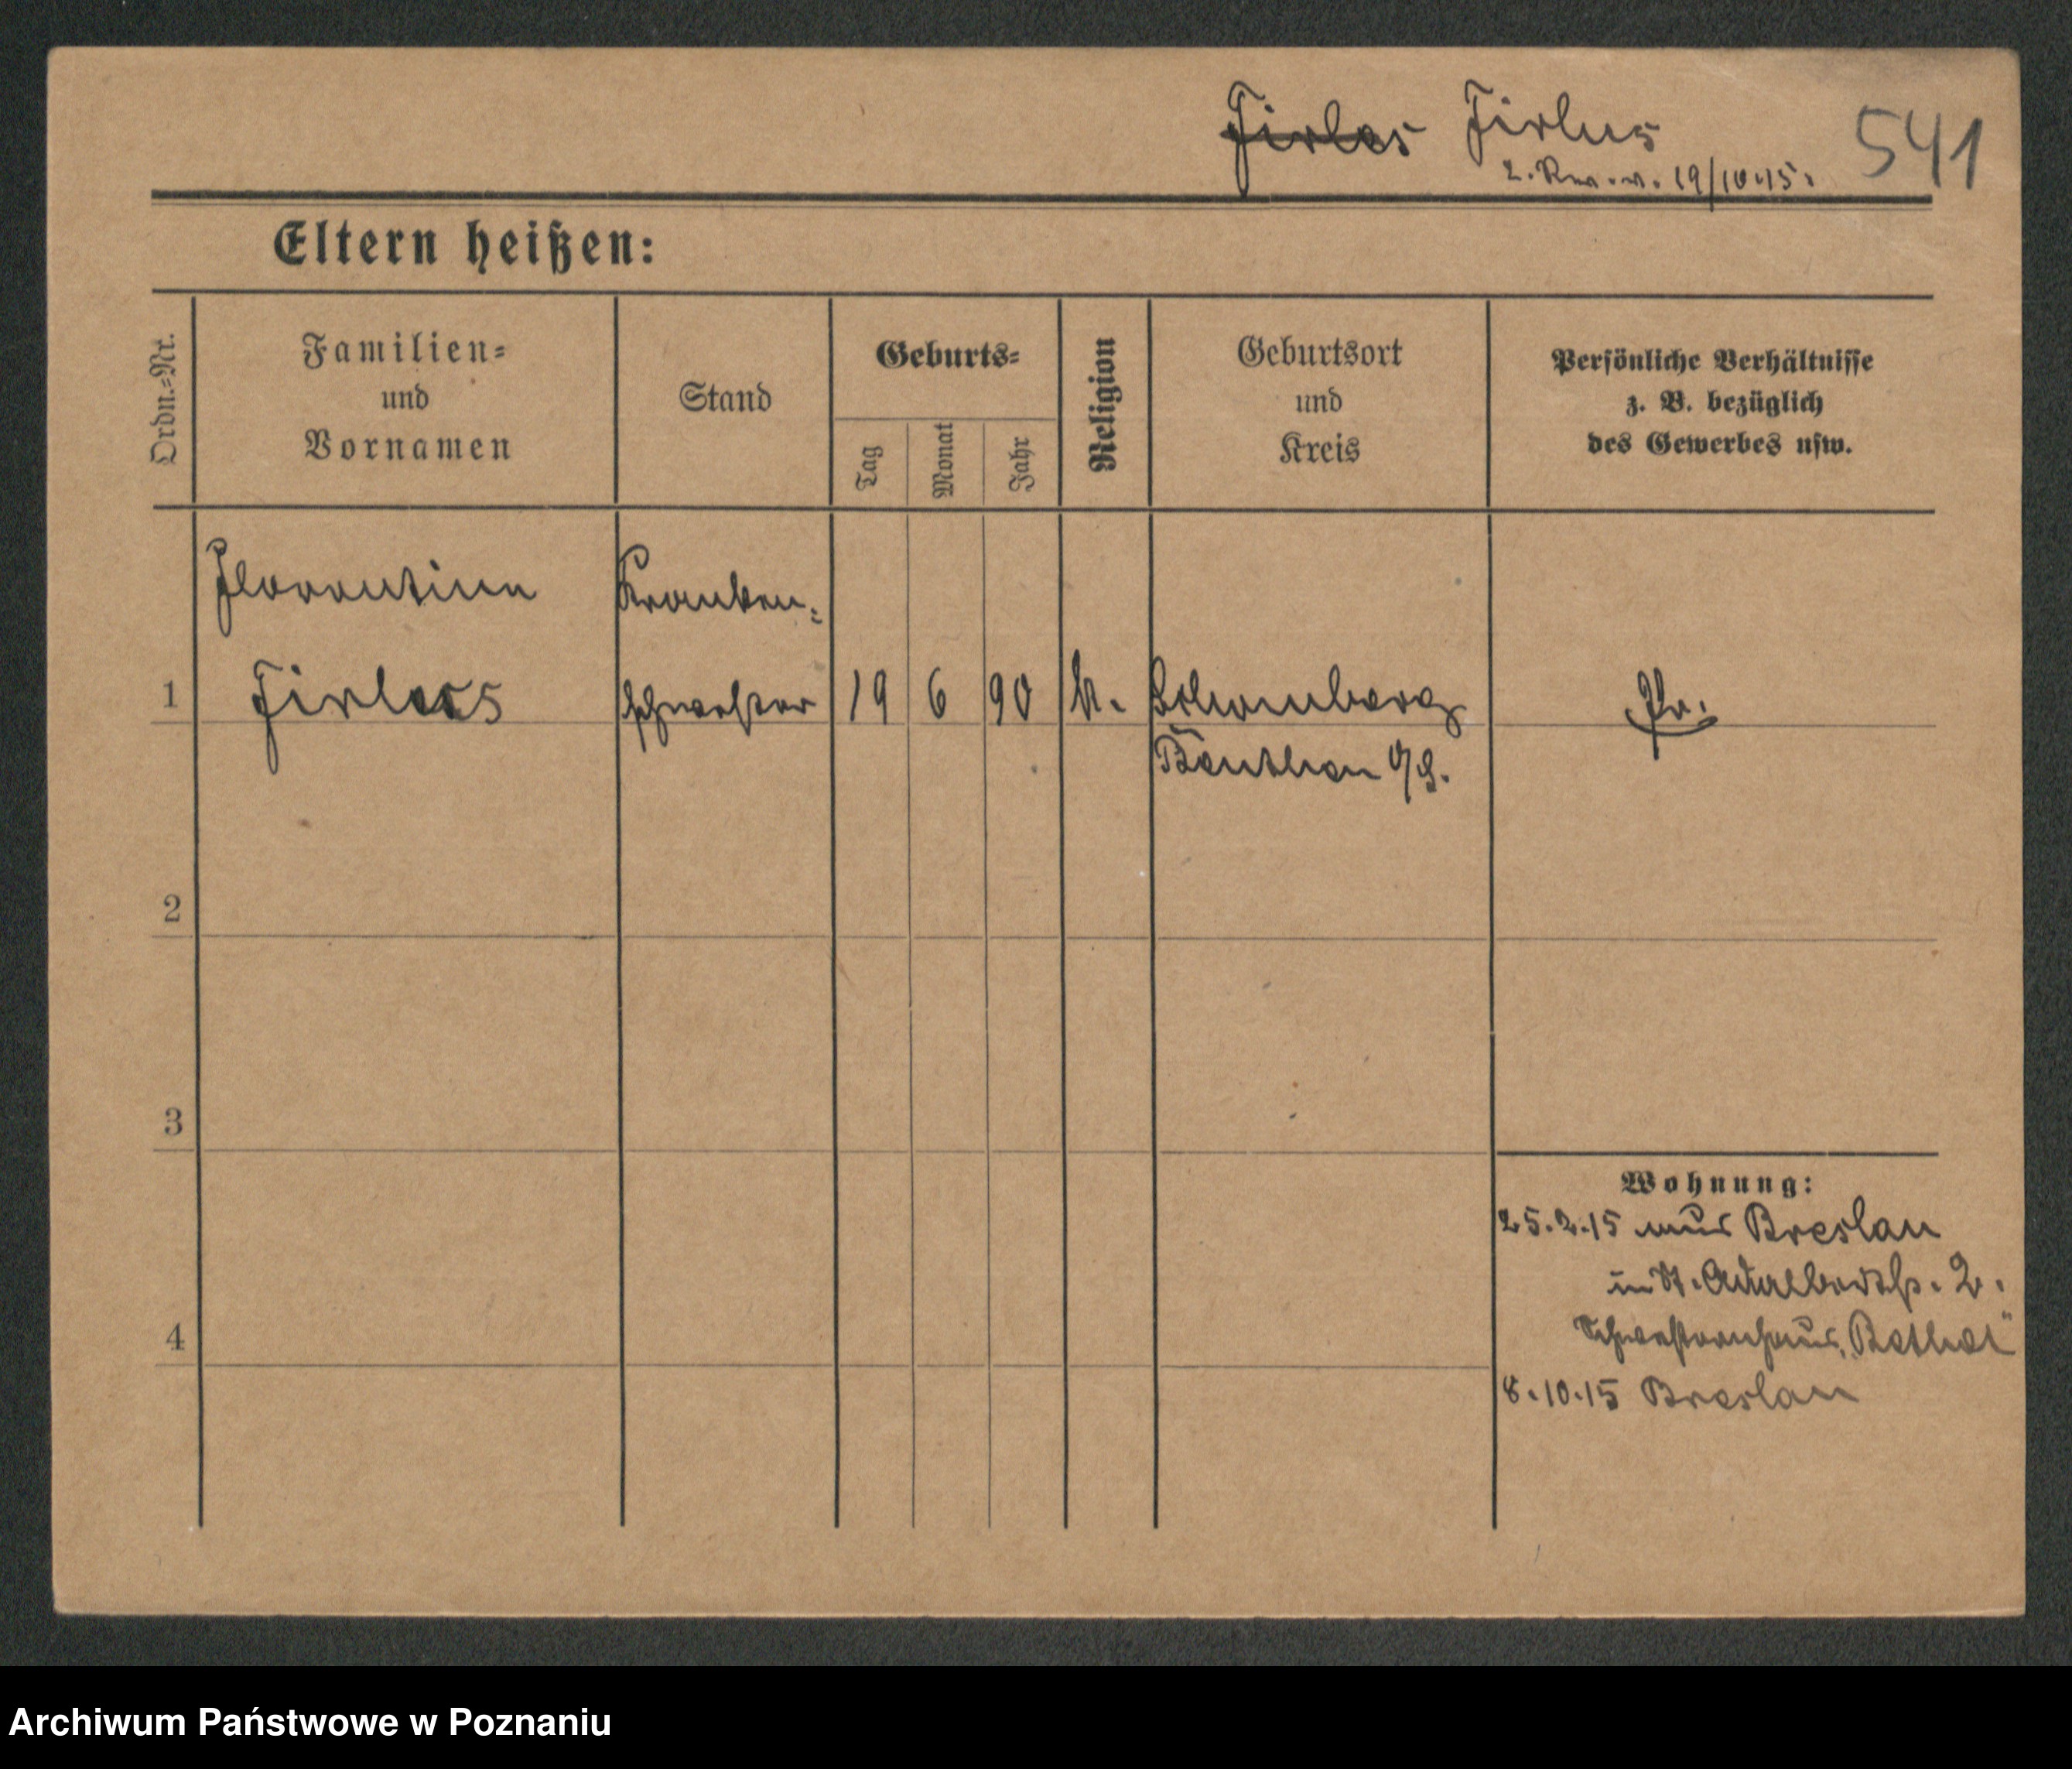 Firlas Firlus 541
19/10.15.
Eltern heißen:
Ordn.=Nr.
Familien=
und
Vornamen
Stand
Geburts=
Tag
Monat
Jahr
Religion
Geburtsort
und
Kreis
Persönliche Verhältnisse
z. B. bezüglich
des Gewerbes usw.
Florentine Kranken=
1 Firlus schwester 19 6 90 k. Schomberg Pr.
Beuthen O/S.
2
3
Wohnung:
25.2.15 aus Breslau
in St. Adalbertstr. 2.
4 Schwesternhaus "Bethel"
8.10.15 Breslau
Archiwum Państwowe w Poznaniu